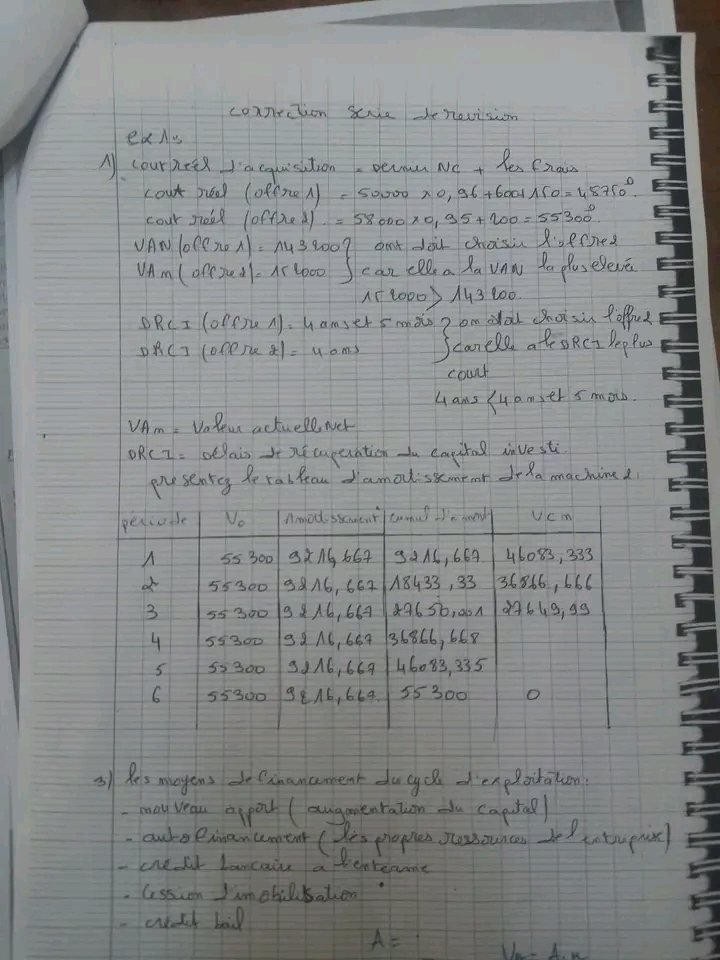 correction serie de revision
ex 1:
1) cout réel d'acquisition = dernier NC + les frais
cout réel (offre 1) = 50000 x 0,96 + 600 + 150 = 48750 D
cout réel (offre 2) = 58000 x 0,95 + 200 = 55300 D
VAN (offre 1) = 143200 } ont doit choisir l'offre 2
VAN (offre 2) = 152000 } car elle a la VAN la plus elevée
152000 > 143200
DRCI (offre 1) = 4 ans et 5 mois } on doit choisir l'offre 2
DRCI (offre 2) = 4 ans } car elle a le DRCI le plus
court
4 ans < 4 ans et 5 mois.
VAN = Valeur actuelle Net
DRCI = Delais de récuperation du capital investi.
presentez le tableau d'amortissement de la machine 2.
periode V0 Amortissement cumul d'amort VCN
1 55300 9216,667 9216,667 46083,333
2 55300 9216,667 18433,33 36866,666
3 55300 9216,667 27650,001 27649,99
4 55300 9216,667 36866,668
5 55300 9216,667 46083,335
6 55300 9216,667 55300 0
3) les moyens de financement du cycle d'exploitation:
- nouveau apport (augmentation du capital)
- autofinancement (les propres ressources de l'entreprise)
- credit bancaire a
- Cession d'imobilisation
- credit bail
A =